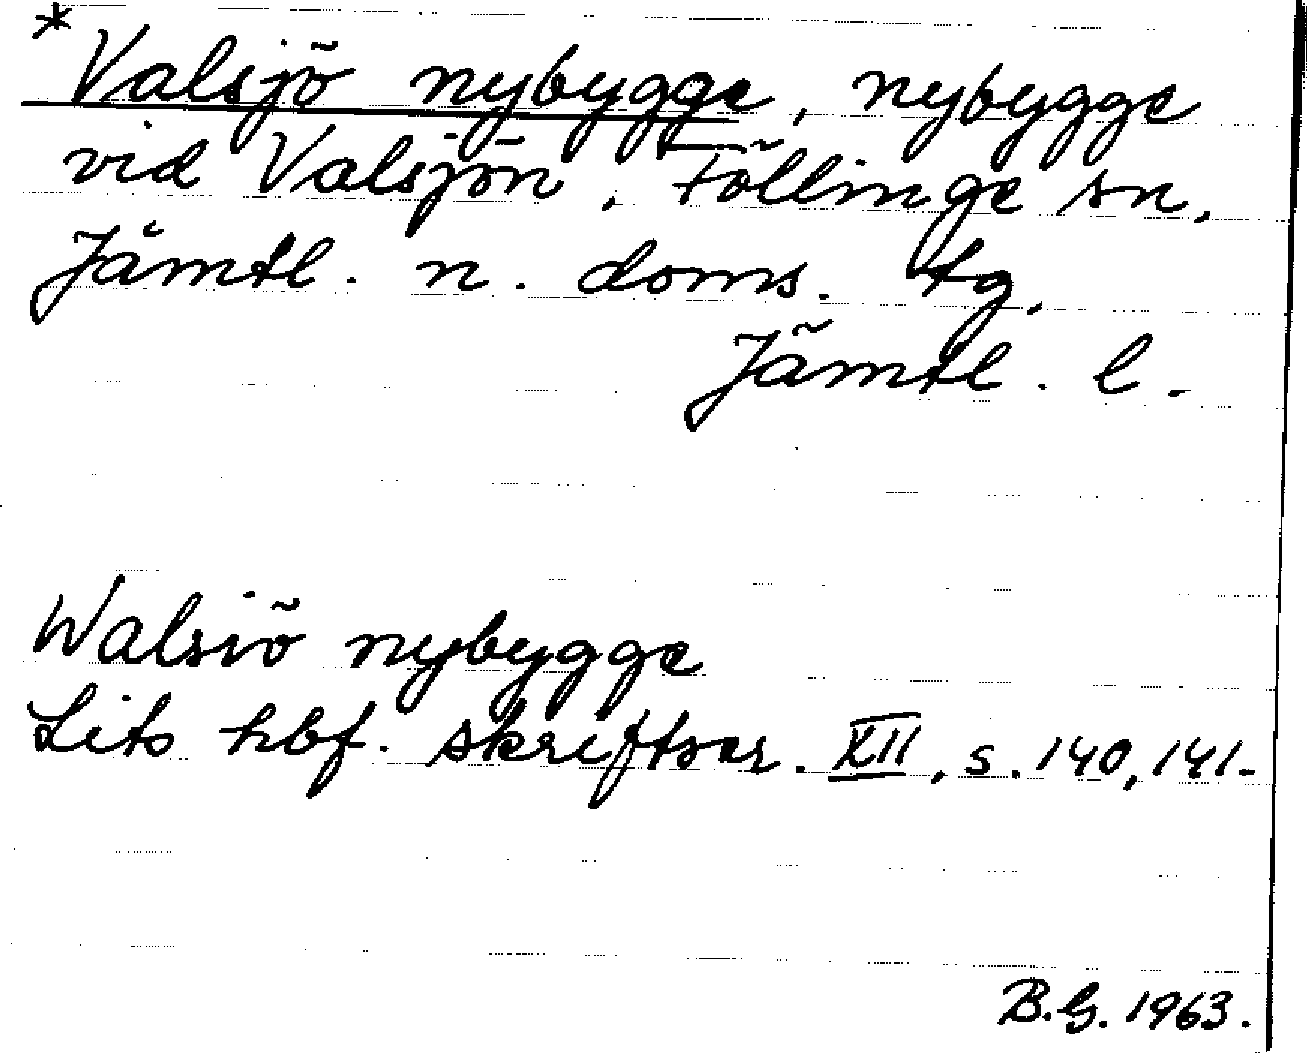 * Valsjö nybygge, nybygge
vid Valsjön, Föllinge sn,
Jämtl. n. doms. tg,
Jämtl. l.
Walsiö nybygge
Lits hbf. skriftser. XII, s. 140, 141.
B.G. 1963.